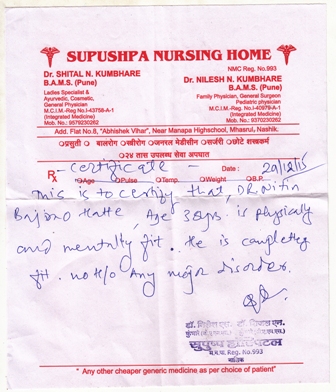 SUPUSHPA NURSING HOME
NMC Reg. No.993
Dr. SHITAL N. KUMBHARE
B.A.M.S. (Pune)
Ladies Specialist &
Ayurvedic, Cosmetic,
General Physician
M.C.I.M.-Reg No.I-43758-A-1
(Integrated Medicine)
Mob. No.: 9579230262
Dr. NILESH N. KUMBHARE
B.A.M.S. (Pune)
Family Physician, General Surgeon
Pediatric physician
M.C.I.M-Reg No.I-40979-A-1
(Integrated Medicine)
Mob. No.: 9370230262
Add. Flat No.8, "Abhishek Vihar", Near Manapa Highschool, Mhasrul, Nashik.
○प्रसुती ○ बालरोग ○स्त्रीरोग ○जनरल मेडीसीन ○सर्जरी ○छोटे शस्त्रकर्म
○२४ तास उपलब्ध सेवा अपघात
Certificate Date : 29/12/15
Rx ○Age ○Pulse ○Temp. ○Weight ○B.P.
This is to certify that, DR. Nitin
Hatte, Age 38yrs. is physically
and mentally fit.. He is completely
fit. no H/o Any major disorder.
सुपुष्प हॉस्पिटल
म.न.पा. Reg. No.993
नाशिक
* Any other cheaper generic medicine as per choice of patient"